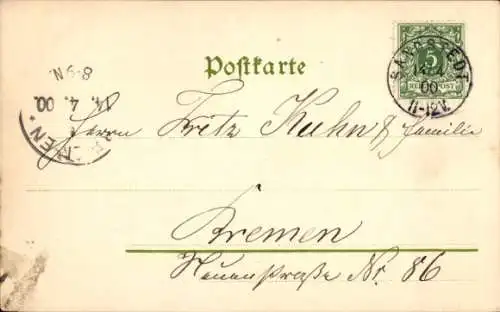 Postkarte
SARSTEDT
00
11-12V.
5
REICHSPOST
8-9N.
14. 4. 00.
BREMEN *
Herrn Fritz Kuhn & Familie
Bremen
Nr. 86